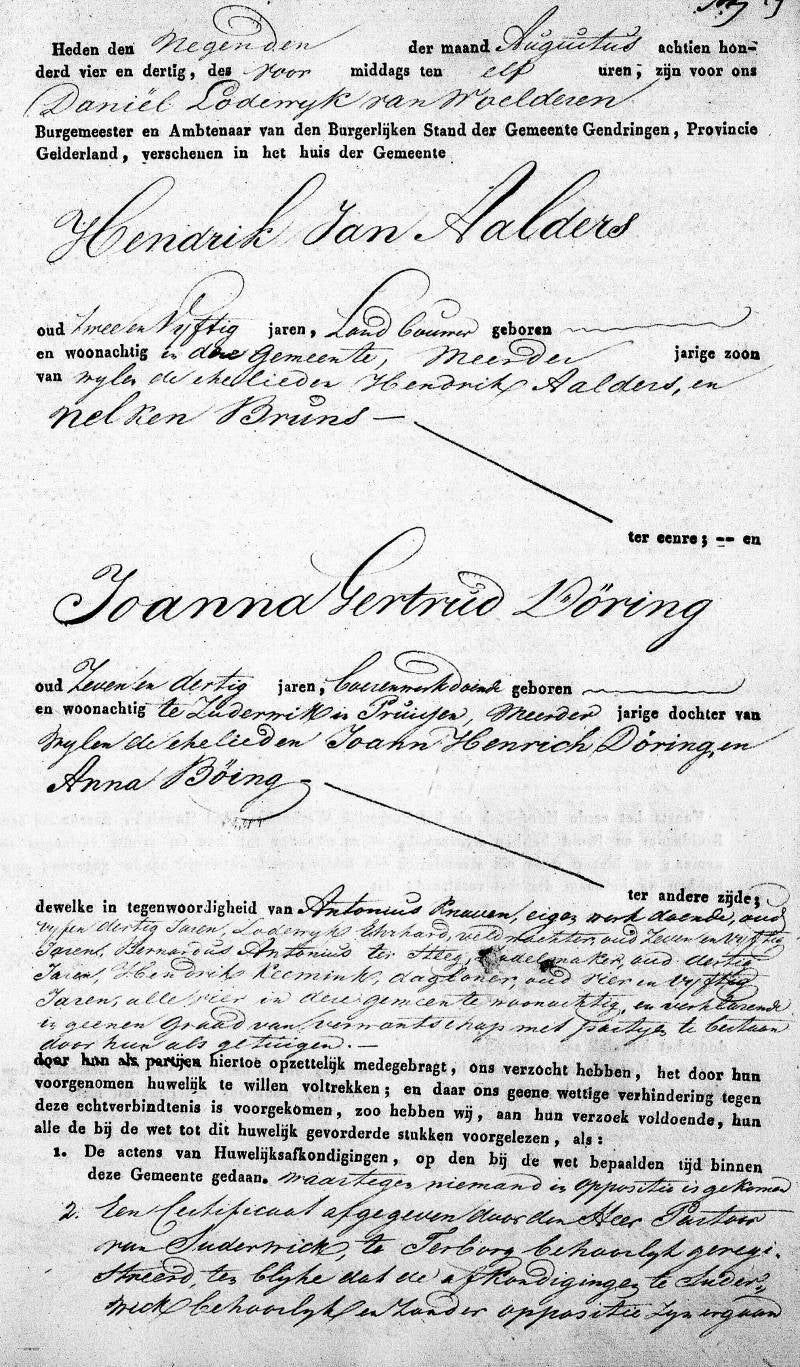 Heden den Negenden der maand Augustus achtien hon-
derd vier en dertig, des voor middags ten elf uren, zijn voor ons
Daniël Lodewyk van Woelderen
Burgemeester en Ambtenaar van den Burgerlijken Stand der Gemeente Gendringen, Provincie
Gelderland, verschenen in het huis der Gemeente
Hendrik Jan Aalders
oud twee en Vyftig jaren, Landbouwer geboren
en woonachtig in deze Gemeente, Meerder jarige zoon
van wylen de ehelieden Hendrik Aalders, en
Nelken Bruns —
ter eenre; -- en
Joanna Gertrud Döring
oud Zeven en dertig jaren, boerenwerkdoende geboren
en woonachtig te Zuderwik in Pruisen, Meerder jarige dochter van
Wylen de ehelieden Joann Henrich Döring, en
Anna Böing
ter andere zijde;
dewelke in tegenwoordigheid van Antonius Knaven, eigen werk doende, oud
vyf en dertig Jaren, Lodewyk Ehrhard, veldwachter, oud Zeven en Vyftig
Jaren, Bernardus Antonius ter Steeg, oud dertig
Jaren, Hendrik Reemink, dagloner, oud vier en Vyftig
Jaren, alle vier in deze gemeente woonachtig, en verklarende
in geenen Graad van verwantschap met partyen te bestaan
door hun als getuigen. —
door hun als partijen hiertoe opzettelijk medegebragt, ons verzocht hebben, het door hun
voorgenomen huwelijk te willen voltrekken; en daar ons geene wettige verhindering tegen
deze echtverbindtenis is voorgekomen, zoo hebben wij, aan hun verzoek voldoende, hun
alle de bij de wet tot dit huwelijk gevorderde stukken voorgelezen, als:
1. De actens van Huwelijksafkondigingen, op den bij de wet bepaalden tijd binnen
deze Gemeente gedaan. waartegen niemand in oppositie is gekomen
2. Een Certificaat afgegeven door den Heer Pastoor
van Suderwick, te Terborg behoorlyk geregi-
streerd, ten blyke dat de afkondigingen te Suder-
wick behoorlyk en zonder oppositie zyn ergaan